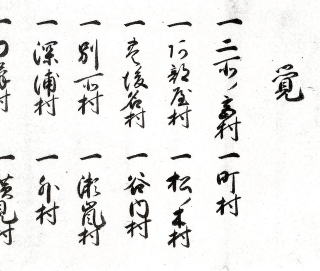 覚
一二所ノ宮村 一町村
一阿部屋村 一松ノ木村
一豊後名村 一谷内村
一別所村 一瀬嵐村
一深浦村 一外村
一 村 一横見村